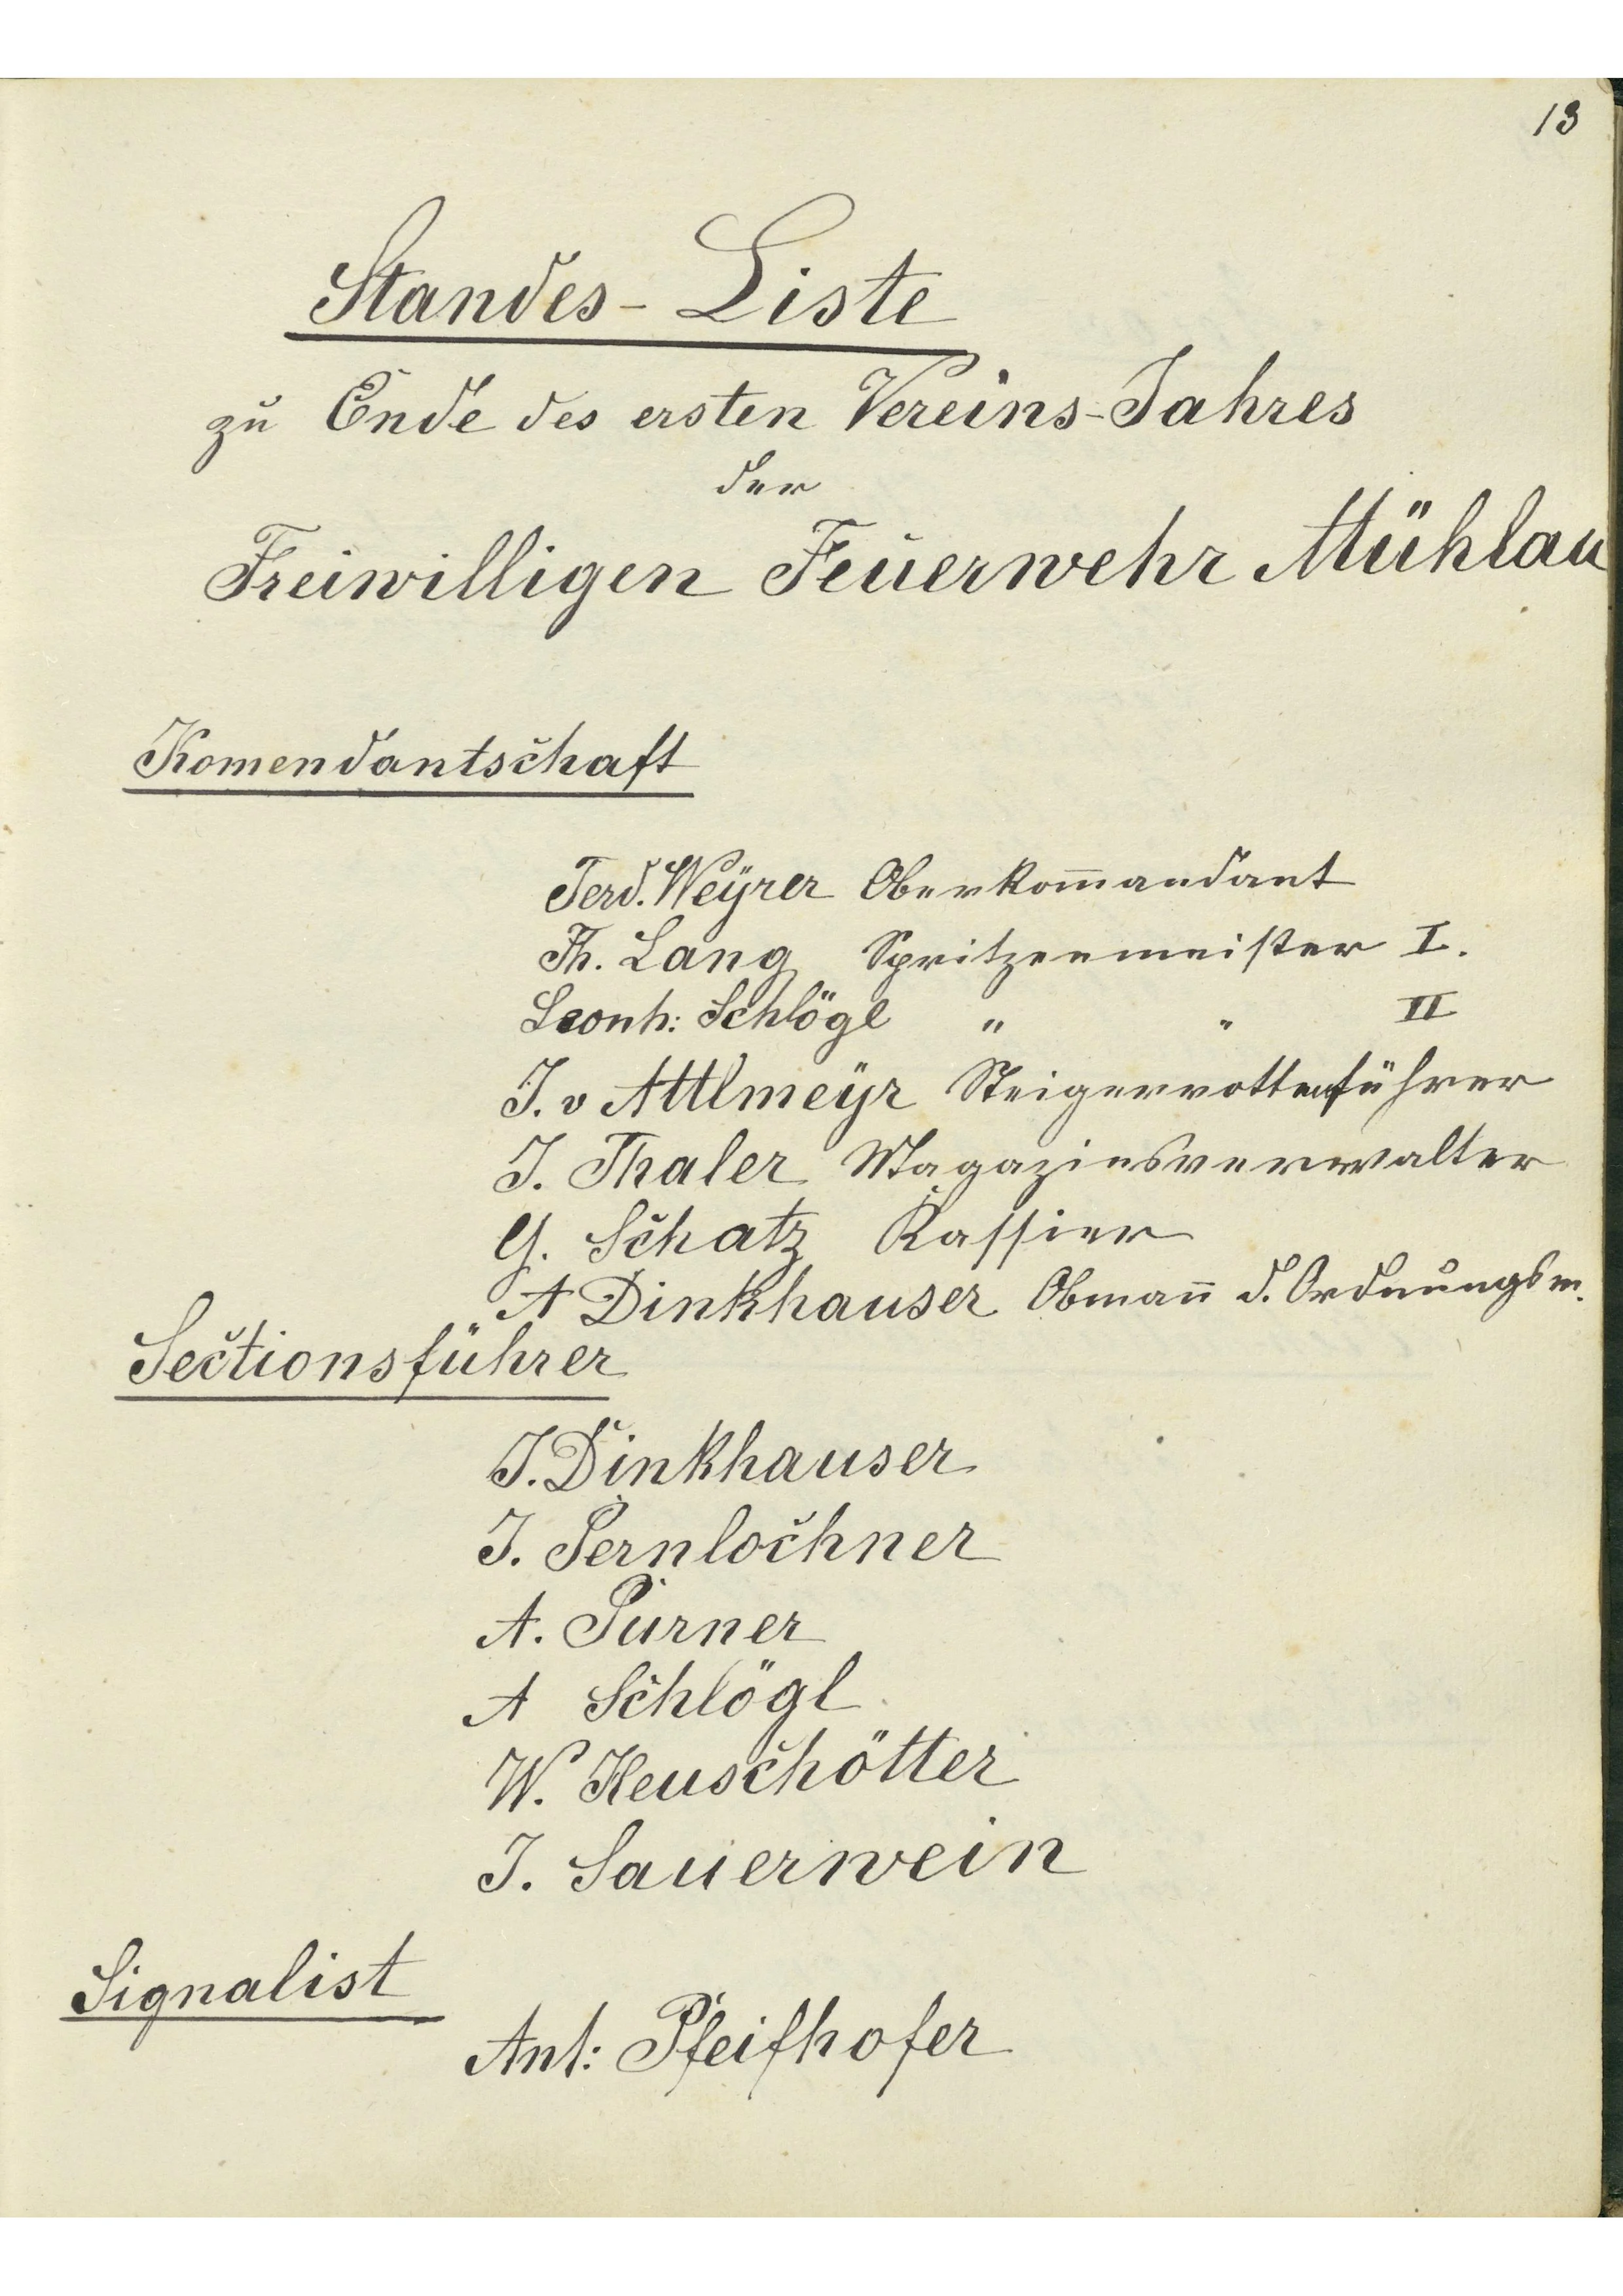 13
Standes-Liste
zu Ende des ersten Vereins-Jahres
der
Freiwilligen Feuerwehr Mühlau
Komendantschaft
Ferd. Weÿrer Oberkom̄andant
Th. Lang Spritzenmeister I.
Leonh: Schlögl " " II
J. v Attlmeÿr Steigerrottenführer
J. Thaler Magazinsverwalter
G. Schatz Kassier
A Dinkhauser Obman̄ d. Ordnungsm.
Sectionsführer
J. Dinkhauser
J. Pernlochner
A. Purner
A Schlögl
W. Heuschötter
J. Sauerwein
Signalist
Ant: Pfeifhofer